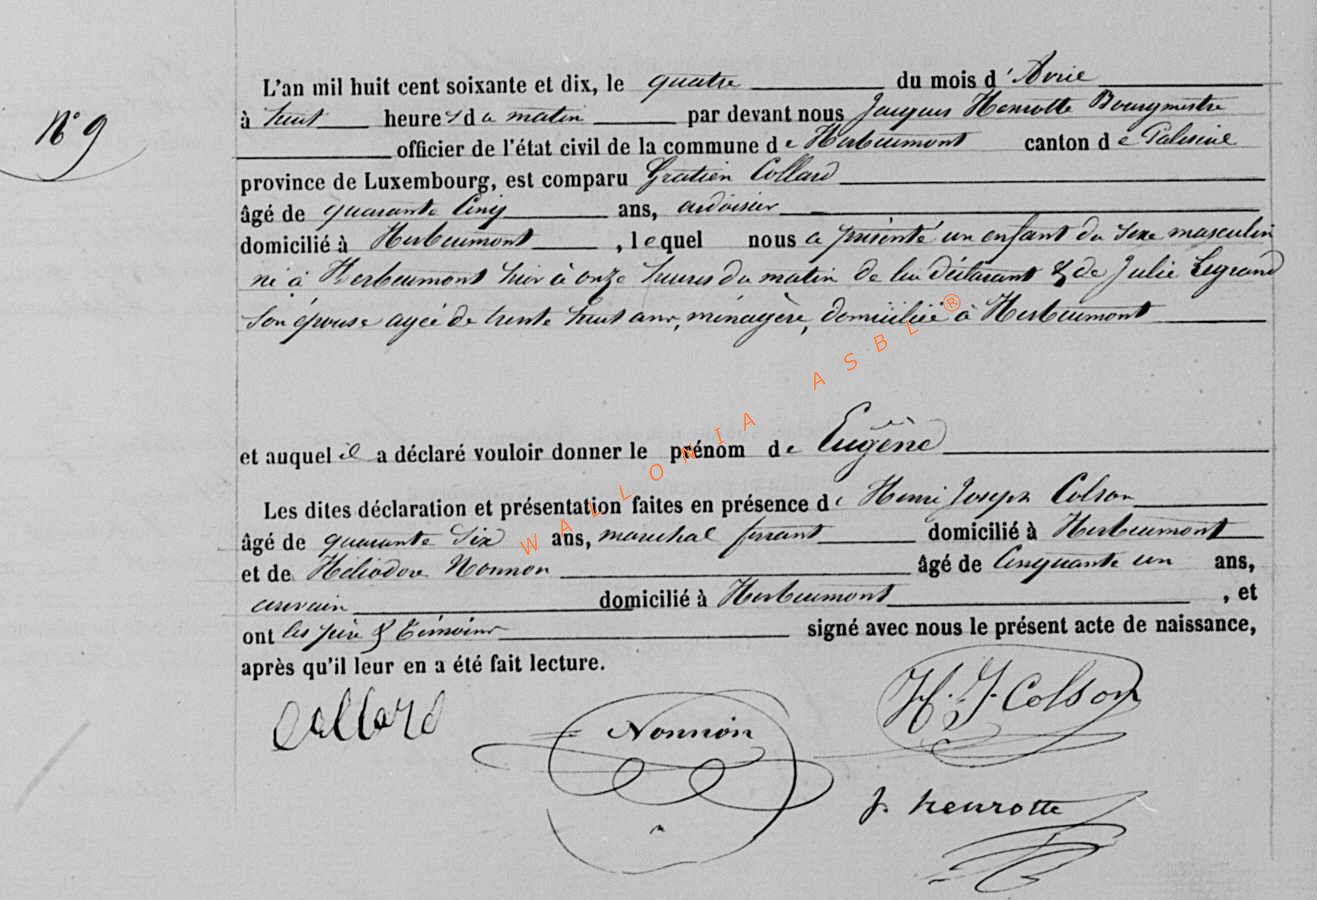 N° 9
L'an mil huit cent soixante et dix, le quatre du mois d'Avril
à huit heures du matin par devant nous Jacques Henrotte Bourgmestre
officier de l'état civil de la commune de Herbeumont canton de Paliseul
province de Luxembourg, est comparu Gratien Collard
âgé de quarante Cinq ans, ardoisier
domicilié à Herbeumont, lequel nous a présenté un enfant du sexe masculin
né à Herbeumont hier à onze heures du matin de lui déclarant & de Julie Legrand
son épouse agée de trente huit ans, ménagère, domiciliée à Herbeumont
et auquel il a déclaré vouloir donner le prénom de Eugène
Les dites déclaration et présentation faites en présence de Henri Joseph Colson
âgé de quarante Six ans, marechal ferrant domicilié à Herbeumont
et de Heliodore Nonnon âgé de Cinquante un ans,
domicilié à Herbeumont, et
ont les père & témoins signé avec nous le présent acte de naissance,
après qu'il leur en a été fait lecture.
Collard
Nonnon
H. J. Colson
J. henrotte
WALLONIA ASBL®